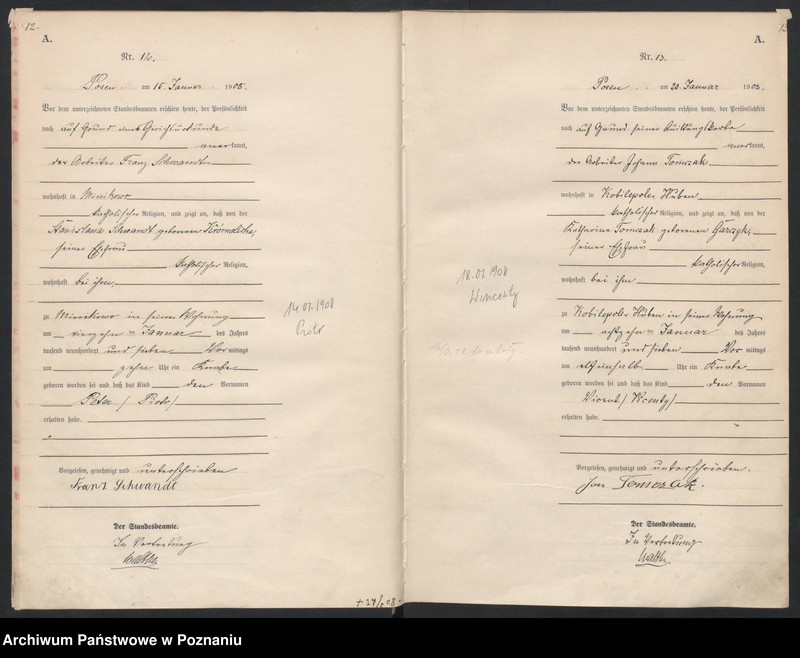 12.
A.
Nr. 12.
Posen am 15 Januar 1908.
Vor dem unterzeichneten Standesbeamten erschien heute, der Persönlichkeit
nach auf Grund
anerkannt,
der Arbeiter Franz Schwandt
wohnhaft in Minikowo
katholischer Religion, und zeigt an, daß von der
Stanislawa Schwandt geborenen
seiner Ehefrau
katholischer Religion,
wohnhaft bei ihm,
zu Minikowo in seiner Wohnung
am vierzehn ten Januar des Jahres
tausend neunhundert und Vormittags
um zehn Uhr ein Knabe
geboren worden sei und daß das Kind den Vornamen
Peter / Piotr /
erhalten habe.
Vorgelesen, genehmigt und unterschrieben
Franz Schwandt
Der Standesbeamte.
In Vertretung
14.01.1908
Piotr
A.
Nr. 13.
Posen am 20 Januar 1908.
Vor dem unterzeichneten Standesbeamten erschien heute, der Persönlichkeit
nach auf Grund seiner Quittungskarte
anerkannt,
der Arbeiter Johann Tomczak
wohnhaft in Kobilepole Huben
katholischer Religion, und zeigt an, daß von der
Katharina Tomczak geborenen
seiner Ehefrau
katholischer Religion,
wohnhaft bei ihm
zu Kobilepole Huben in seiner Wohnung
am achtzehn ten Januar des Jahres
tausend neunhundert und Vormittags
um elfeinhalb Uhr ein Knabe
geboren worden sei und daß das Kind den Vornamen
erhalten habe.
Vorgelesen, genehmigt und unterschrieben.
Jan Tomczak.
Der Standesbeamte.
In Vertretung
18.01.1908
Wincenty
Archiwum Państwowe w Poznaniu